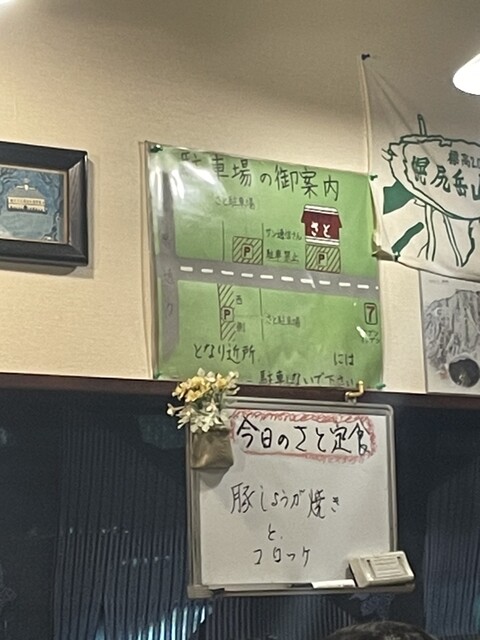 駐車場の御案内
さと駐車場
さと
サン通信さん
駐車禁止
P
P
西
P
側
さと駐車場
7
となり近所
には
駐車しないで下さい
幌尻岳
今日のさと定食
豚しょうが焼き
と
コロッケ